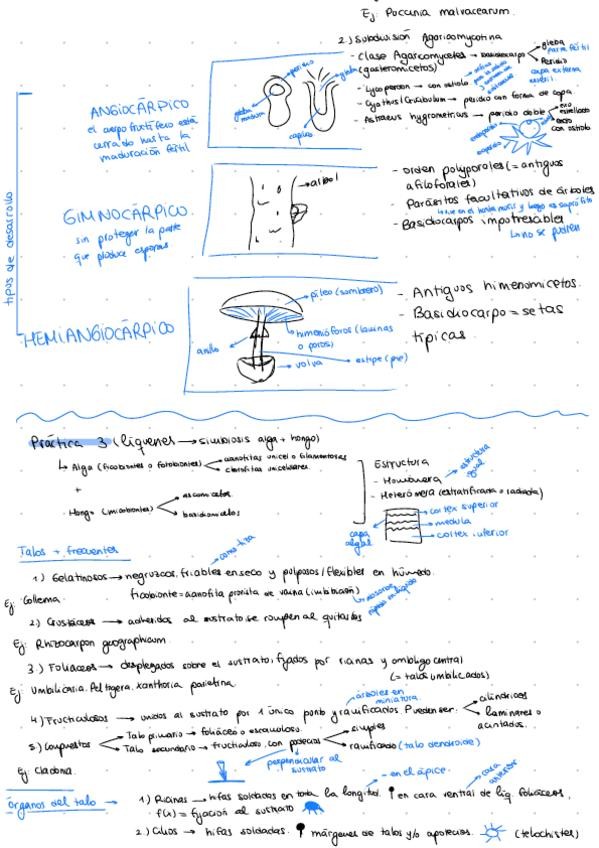 Ej: Puccinia malvacearum.
2.) Subdivisión Agaricomycotina
- Clase Agaricomycetes → basidiocarpo
gleba
parte fértil
Peridio
capa externa
estéril
(gasteromicetos)
- Lycoperdon → con ostiolo
- Cyathus/Crucibulum → peridio con forma de copa
- Astraeus hygrometricus → peridio doble
exo
estrellado
endo
con ostiolo
endoperidio
exoperidio
tipos de desarrollo
ANGIOCÁRPICO
el cuerpo fructífero está
cerrado hasta la
maduración fértil
peridio
gleba
gleba
madura
copitos
GIMNOCÁRPICO.
sin proteger la parte
que produce esporas
árbol
- Orden polyporales (= antiguos
afiloforales)
- Parásitos facultativos de árboles
- Basidiocarpos imputrescibles
↳ no se pudren
HEMIANGIOCÁRPICO
píleo (sombrero)
himenóforos (láminas
o poros)
anillo
volva
estipe (pie)
- Antiguos himenomicetos.
- Basidiocarpo = setas
típicas.
Práctica 3 (líquenes → simbiosis alga + hongo)
↳ Alga (ficobiontes o fotobiontes)
cianofitas unicel o filamentosas
clorofitas unicelulares.
+
Hongo (micobiontes)
ascomicetos
basidiomicetos
Estructura
- Homómera → estructura
igual
- Heterómera (estratificada o radiada)
cortex superior
medula
cortex inferior
capa
algal
Talos + frecuentes
1) Gelatinosos → negruzcos, friables en seco y pulposos/flexibles en húmedo.
ficobionte = cianofita provista de vaina (imbibición)
Ej: Collema.
2) Crustáceos → adheridos al sustrato, se rompen al quitarlos
Ej: Rhizocarpon geographicum.
3.) Foliáceos → desplegados sobre el sustrato, fijados por ricinas y ombligo central
(= talos umbilicados)
Ej: Umbilicaria, Peltigera, Xanthoria parietina.
árboles en
miniatura
4) Fruticulosos → unidos al sustrato por 1 único punto y ramificados. Pueden ser:
cilíndricos
laminares o
acintados.
5.) Compuestos
Talo primario → foliáceo o escamuloso.
Talo secundario → fruticuloso, con podecios
simples
ramificado (talo dendroide)
Ej: Cladonia.
perpendicular al
sustrato
- en el ápice.
cara
anterior
órganos del talo →
1) Ricinas → hifas soldadas en toda la longitud. en cara ventral de líq. foliáceos,
f(x) = fijación al sustrato
2) Cilios → hifas soldadas. márgenes de talos y/o apotecios. (teloschistes)